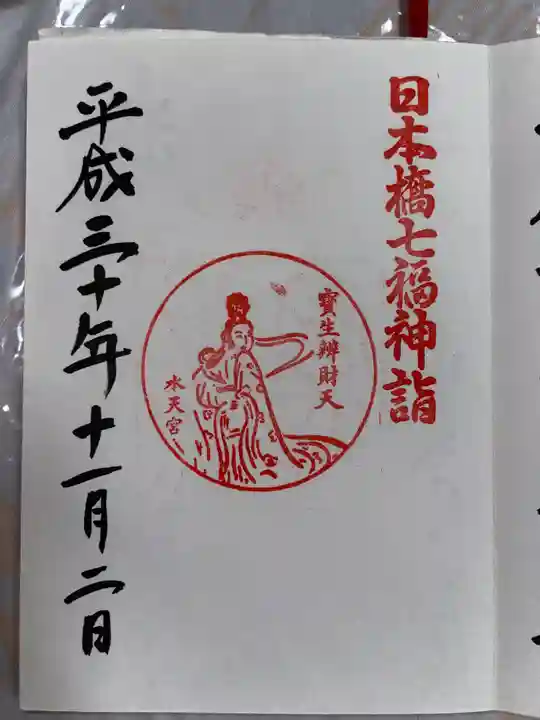 日本橋七福神詣
寳生辨財天
水天宮
平成三十年十一月二日